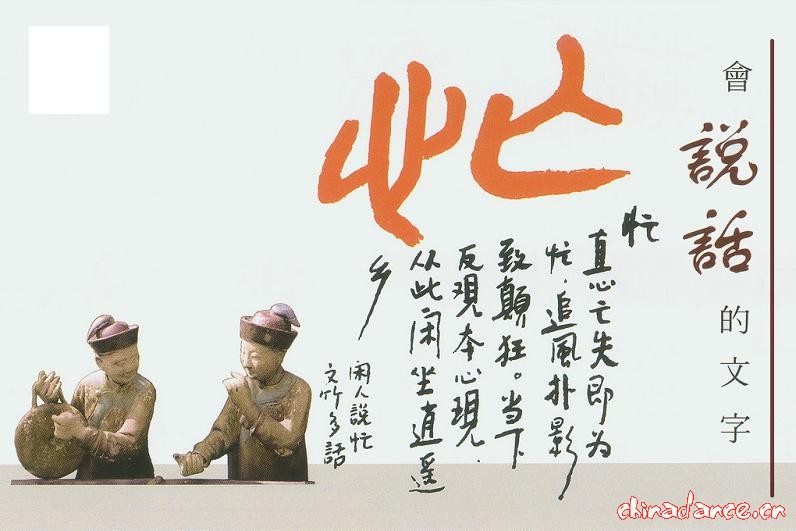 會說話的文字
忙
忙
直心亡失即为
忙．追風扑影
致顛狂。当下
反观本心現．
从此闲坐逍遥
乡
闲人說忙
文竹多話
chinadance.cn